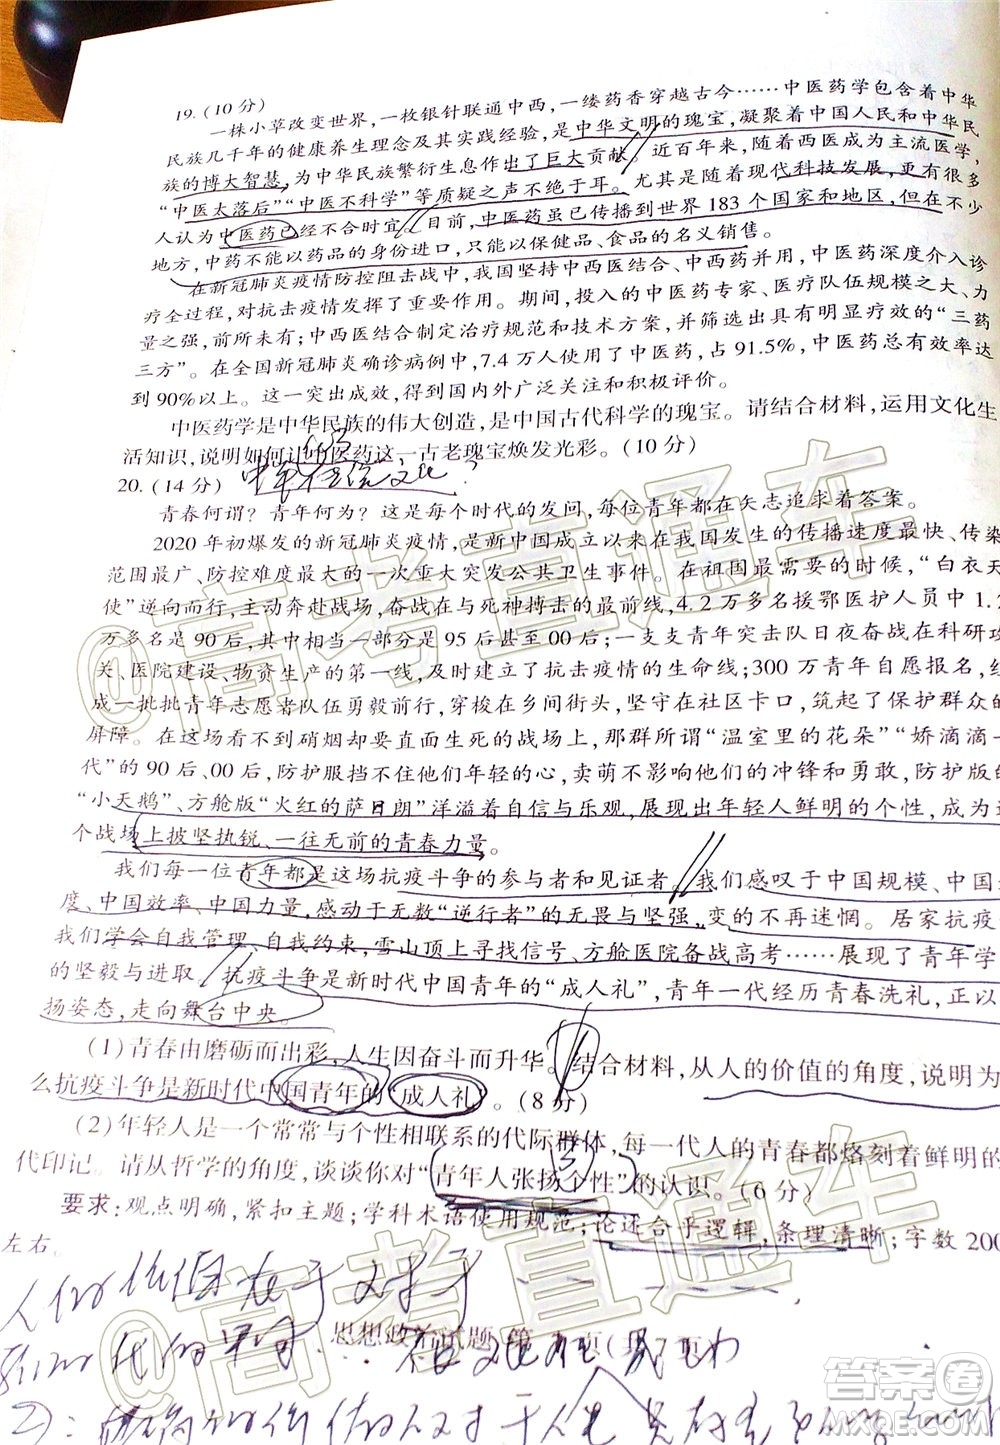 19. (10 分)
一株小草改变世界，一枚银针联通中西，一缕药香穿越古今……中医药学包含着中华
民族几千年的健康养生理念及其实践经验，是中华文明的瑰宝，凝聚着中国人民和中华民
族的博大智慧，为中华民族繁衍生息作出了巨大贡献。近百年来，随着西医成为主流医学，
“中医太落后”“中医不科学”等质疑之声不绝于耳。尤其是随着现代科技发展，更有很多
人认为中医药已经不合时宜。目前，中医药虽已传播到世界 183 个国家和地区，但在不少
地方，中药不能以药品的身份进口，只能以保健品、食品的名义销售。
在新冠肺炎疫情防控阻击战中，我国坚持中西医结合、中西药并用，中医药深度介入诊
疗全过程，对抗击疫情发挥了重要作用。期间，投入的中医药专家、医疗队伍规模之大、力
量之强，前所未有；中西医结合制定治疗规范和技术方案，并筛选出具有明显疗效的“三药
三方”。在全国新冠肺炎确诊病例中，7.4 万人使用了中医药，占 91.5%，中医药总有效率达
到 90%以上。这一突出成效，得到了国内外广泛关注和积极评价。
中医药学是中华民族的伟大创造，是中国古代科学的瑰宝。请结合材料，运用文化生
活知识，说明如何让中医药这一古老瑰宝焕发光彩。(10 分)
20. (14 分)
青春何谓？青年何为？这是每个时代的发问，每位青年都在矢志追求着答案。
2020 年初爆发的新冠肺炎疫情，是新中国成立以来在我国发生的传播速度最快、传染
范围最广、防控难度最大的一次重大突发公共卫生事件。在祖国最需要的时候，“白衣天
使”逆向而行，主动奔赴战场，奋战在与死神搏击的最前线，4.2 万多名援鄂医护人员中 1.2
万多名是 90 后，其中相当一部分是 95 后甚至 00 后；一支支青年突击队日夜奋战在科研攻
关、医院建设、物资生产的第一线，及时建立了抗击疫情的生命线；300 万青年自愿报名，组
成一批批青年志愿者队伍勇毅前行，穿梭在乡间街头，坚守在社区卡口，筑起了保护群众的
屏障。在这场看不到硝烟却要直面生死的战场上，那群所谓“温室里的花朵”“娇滴滴一
代”的 90 后、00 后，防护服挡不住他们年轻的心，卖萌不影响他们的冲锋和勇敢，防护版的
“小天鹅”、方舱版“火红的萨日朗”洋溢着自信与乐观，展现出年轻人鲜明的个性，成为这
个战场上披坚执锐、一往无前的青春力量。
我们每一位青年都是这场抗疫斗争的参与者和见证者。我们感叹于中国规模、中国速
度、中国效率、中国力量，感动于无数“逆行者”的无畏与坚强，变的不再迷惘。居家抗疫，
我们学会自我管理、自我约束，雪山顶上寻找信号、方舱医院备战高考……展现了青年学
的坚毅与进取。抗疫斗争是新时代中国青年的“成人礼”，青年一代经历青春洗礼，正以
扬姿态，走向舞台中央。
(1)青春由磨砺而出彩，人生因奋斗而升华。结合材料，从人的价值的角度，说明为
么抗疫斗争是新时代中国青年的“成人礼”。(8 分)
(2)年轻人是一个常常与个性相联系的代际群体，每一代人的青春都烙刻着鲜明的
代印记。请从哲学的角度，谈谈你对“青年人张扬个性”的认识。(6 分)
要求：观点明确，紧扣主题；学科术语使用规范；论述合乎逻辑，条理清晰；字数 200
左右。
思想政治试题 第
@高考直通车
@高考直通车
答案卷